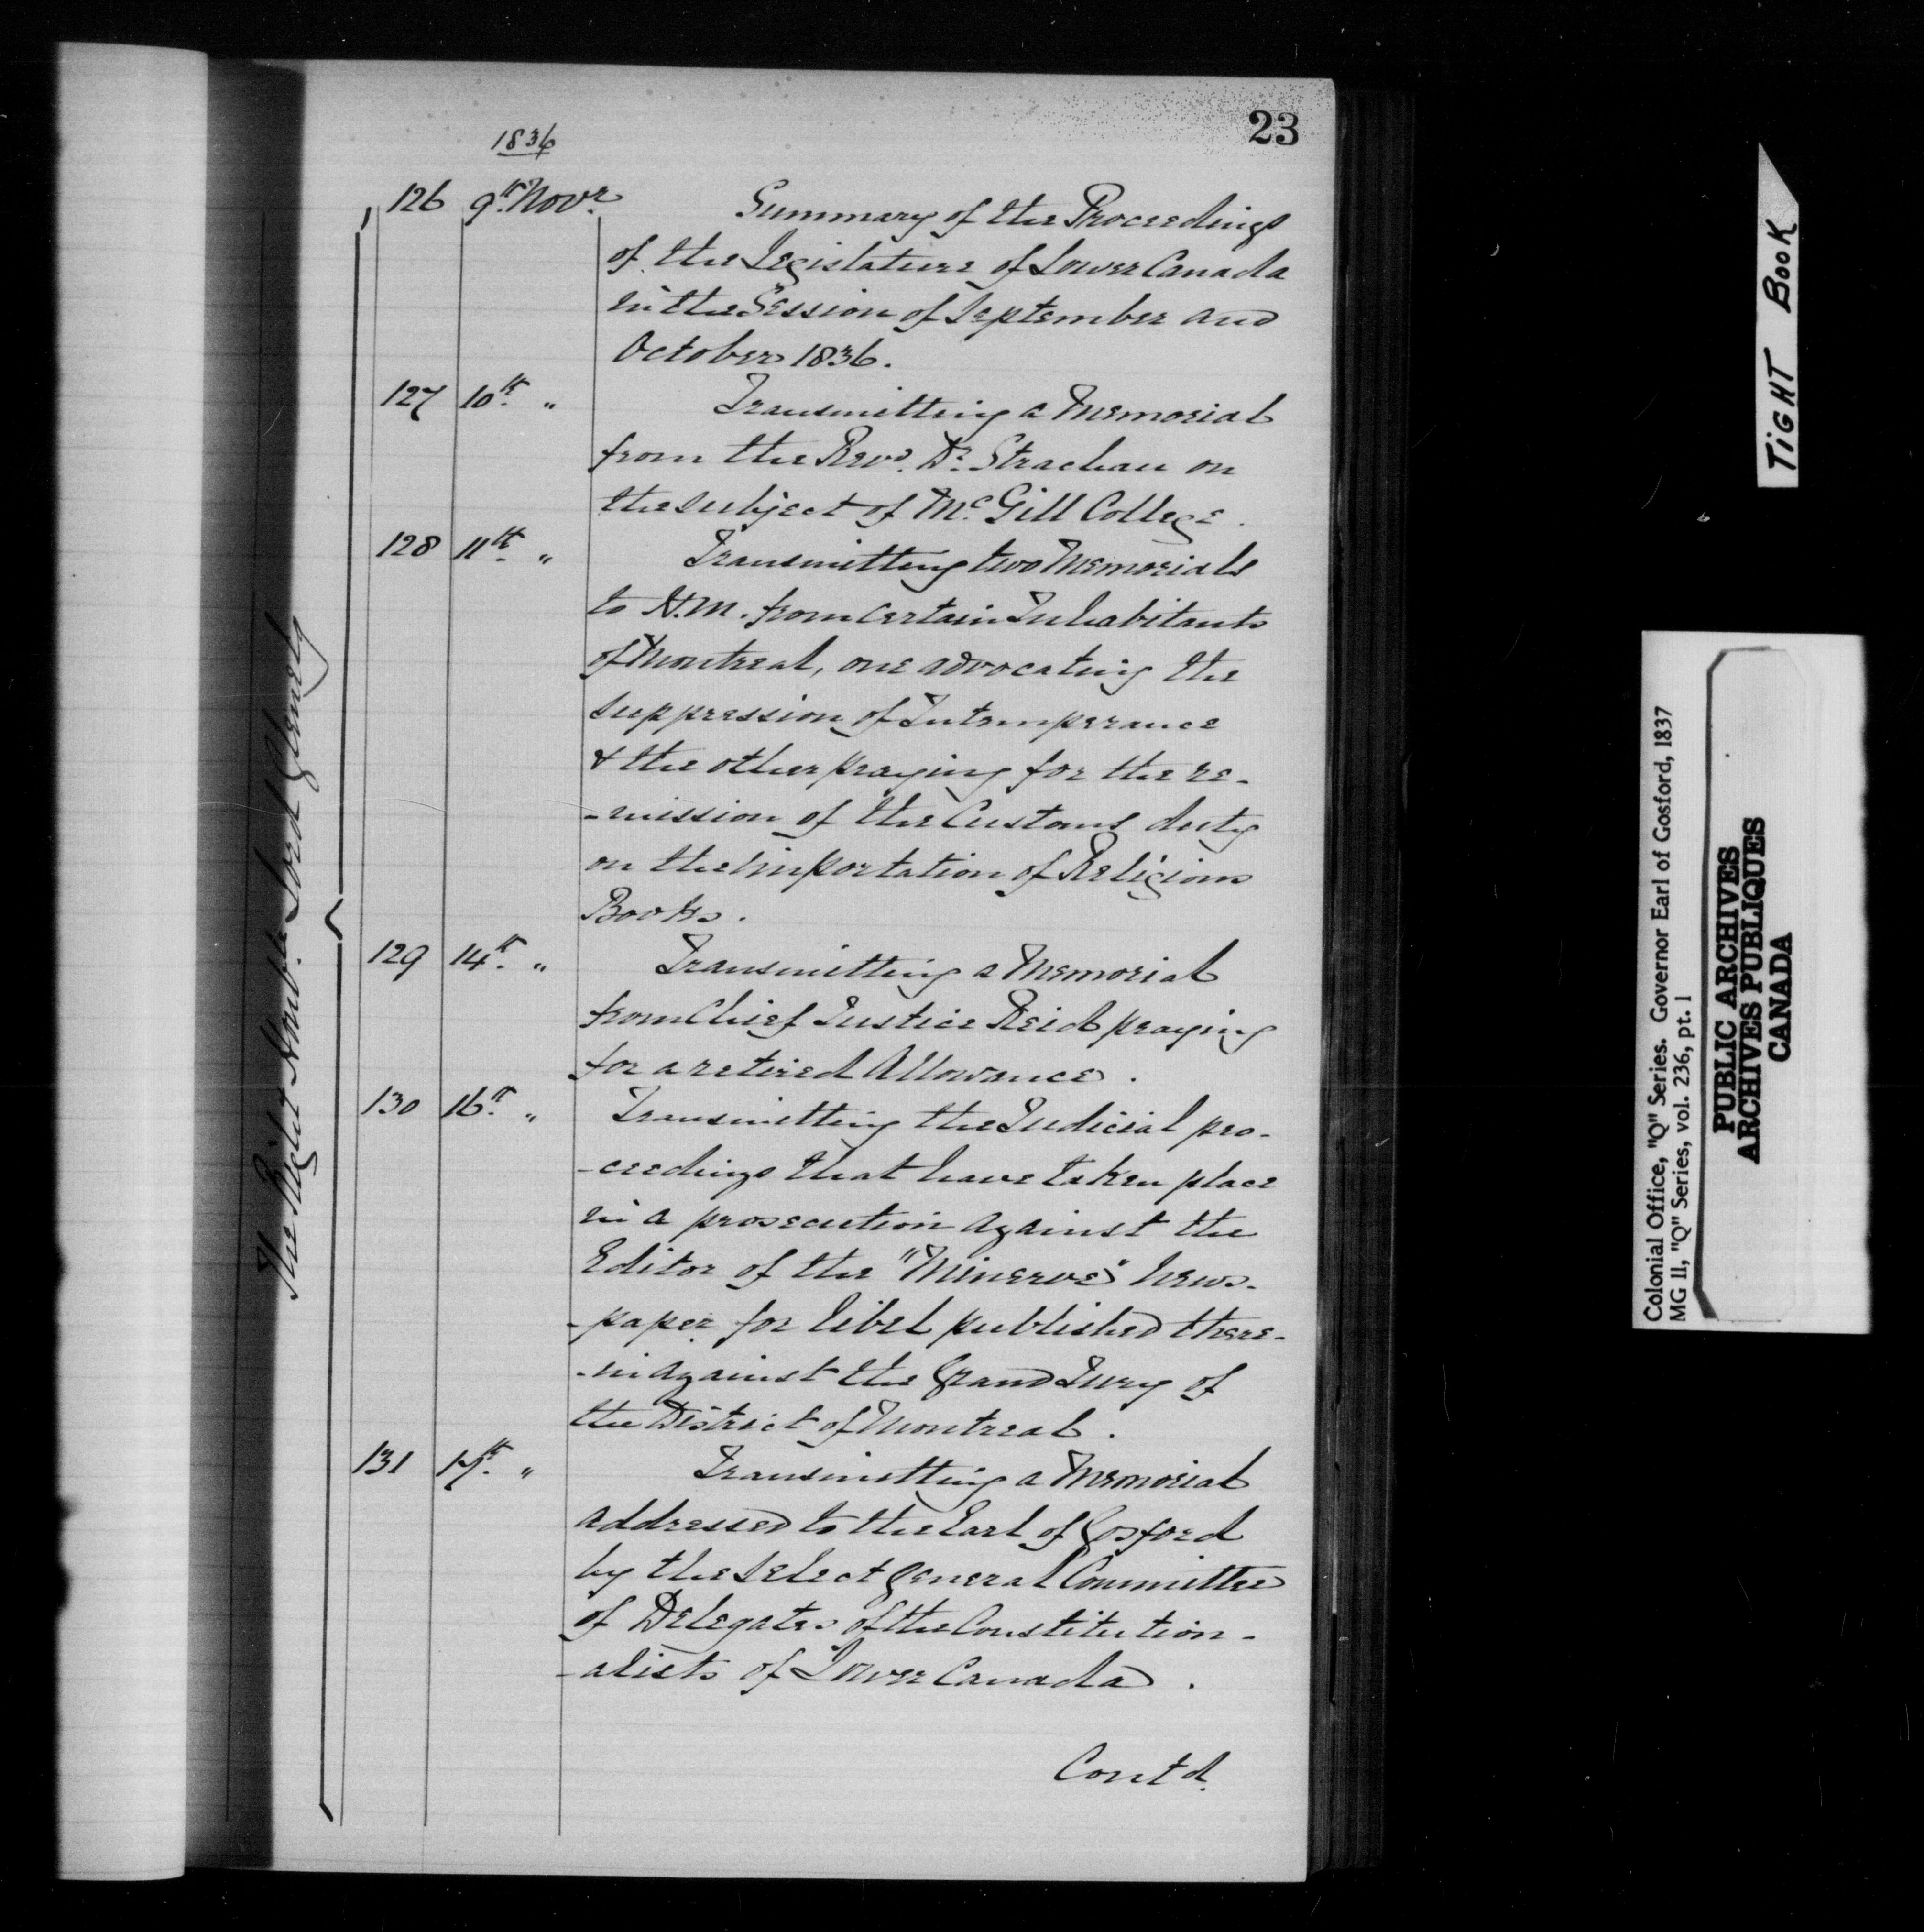 23
1836
126 9th Novr. Summary of the Proceedings
of the Legislature of Lower Canada
in the Session of September and
October 1836.
127 10th. " Transmitting a Memorial
from the Revd. Dr. Strachan on
the subject of Mc.Gill College.
128 11th. " Transmitting two Memorials
to H.M. from certain Inhabitants
of Montreal, one advocating the
suppression of Intemperance
& the other praying for the re-
-mission of the Customs duty
on the importation of Religious
Books.
129 14th. " Transmitting a Memorial
from Chief Justice Reid praying
for a retired Allowance.
130 16th. " Transmitting the Judicial pro-
-ceedings that have taken place
in a prosecution against the
Editor of the "Minerve" news-
-paper for libel published there-
-in against the Grand Jury of
the District of Montreal.
131 17th. " Transmitting a Memorial
addressed to the Earl of Gosford
by the Select General Committee
of Delegates of the Constitution-
-alists of Lower Canada.
Contd.
The Right Honble. Lord Glenelg
TIGHT BOOK
Colonial Office, "Q" Series. Governor Earl of Gosford, 1837
MG 11, "Q" Series, vol. 236, pt. 1
PUBLIC ARCHIVES
ARCHIVES PUBLIQUES
CANADA